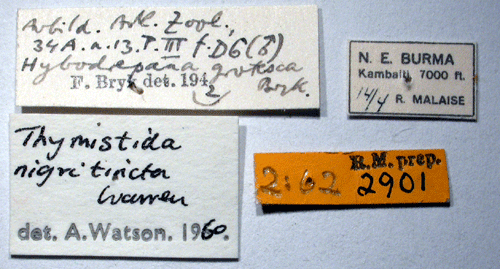 Abbild. Ark. Zool.,
34A. n. 13. T. III f. D6 (♂)
Hybodrepana grotesca
F. Bryk det. 194 2 Bryk.
N. E. BURMA
Kambaiti, 7000 ft.
14/4 R. MALAISE
Thymistida
nigritincta
Warren
det. A. Watson. 1960.
R.M. prep.
2:62 2901